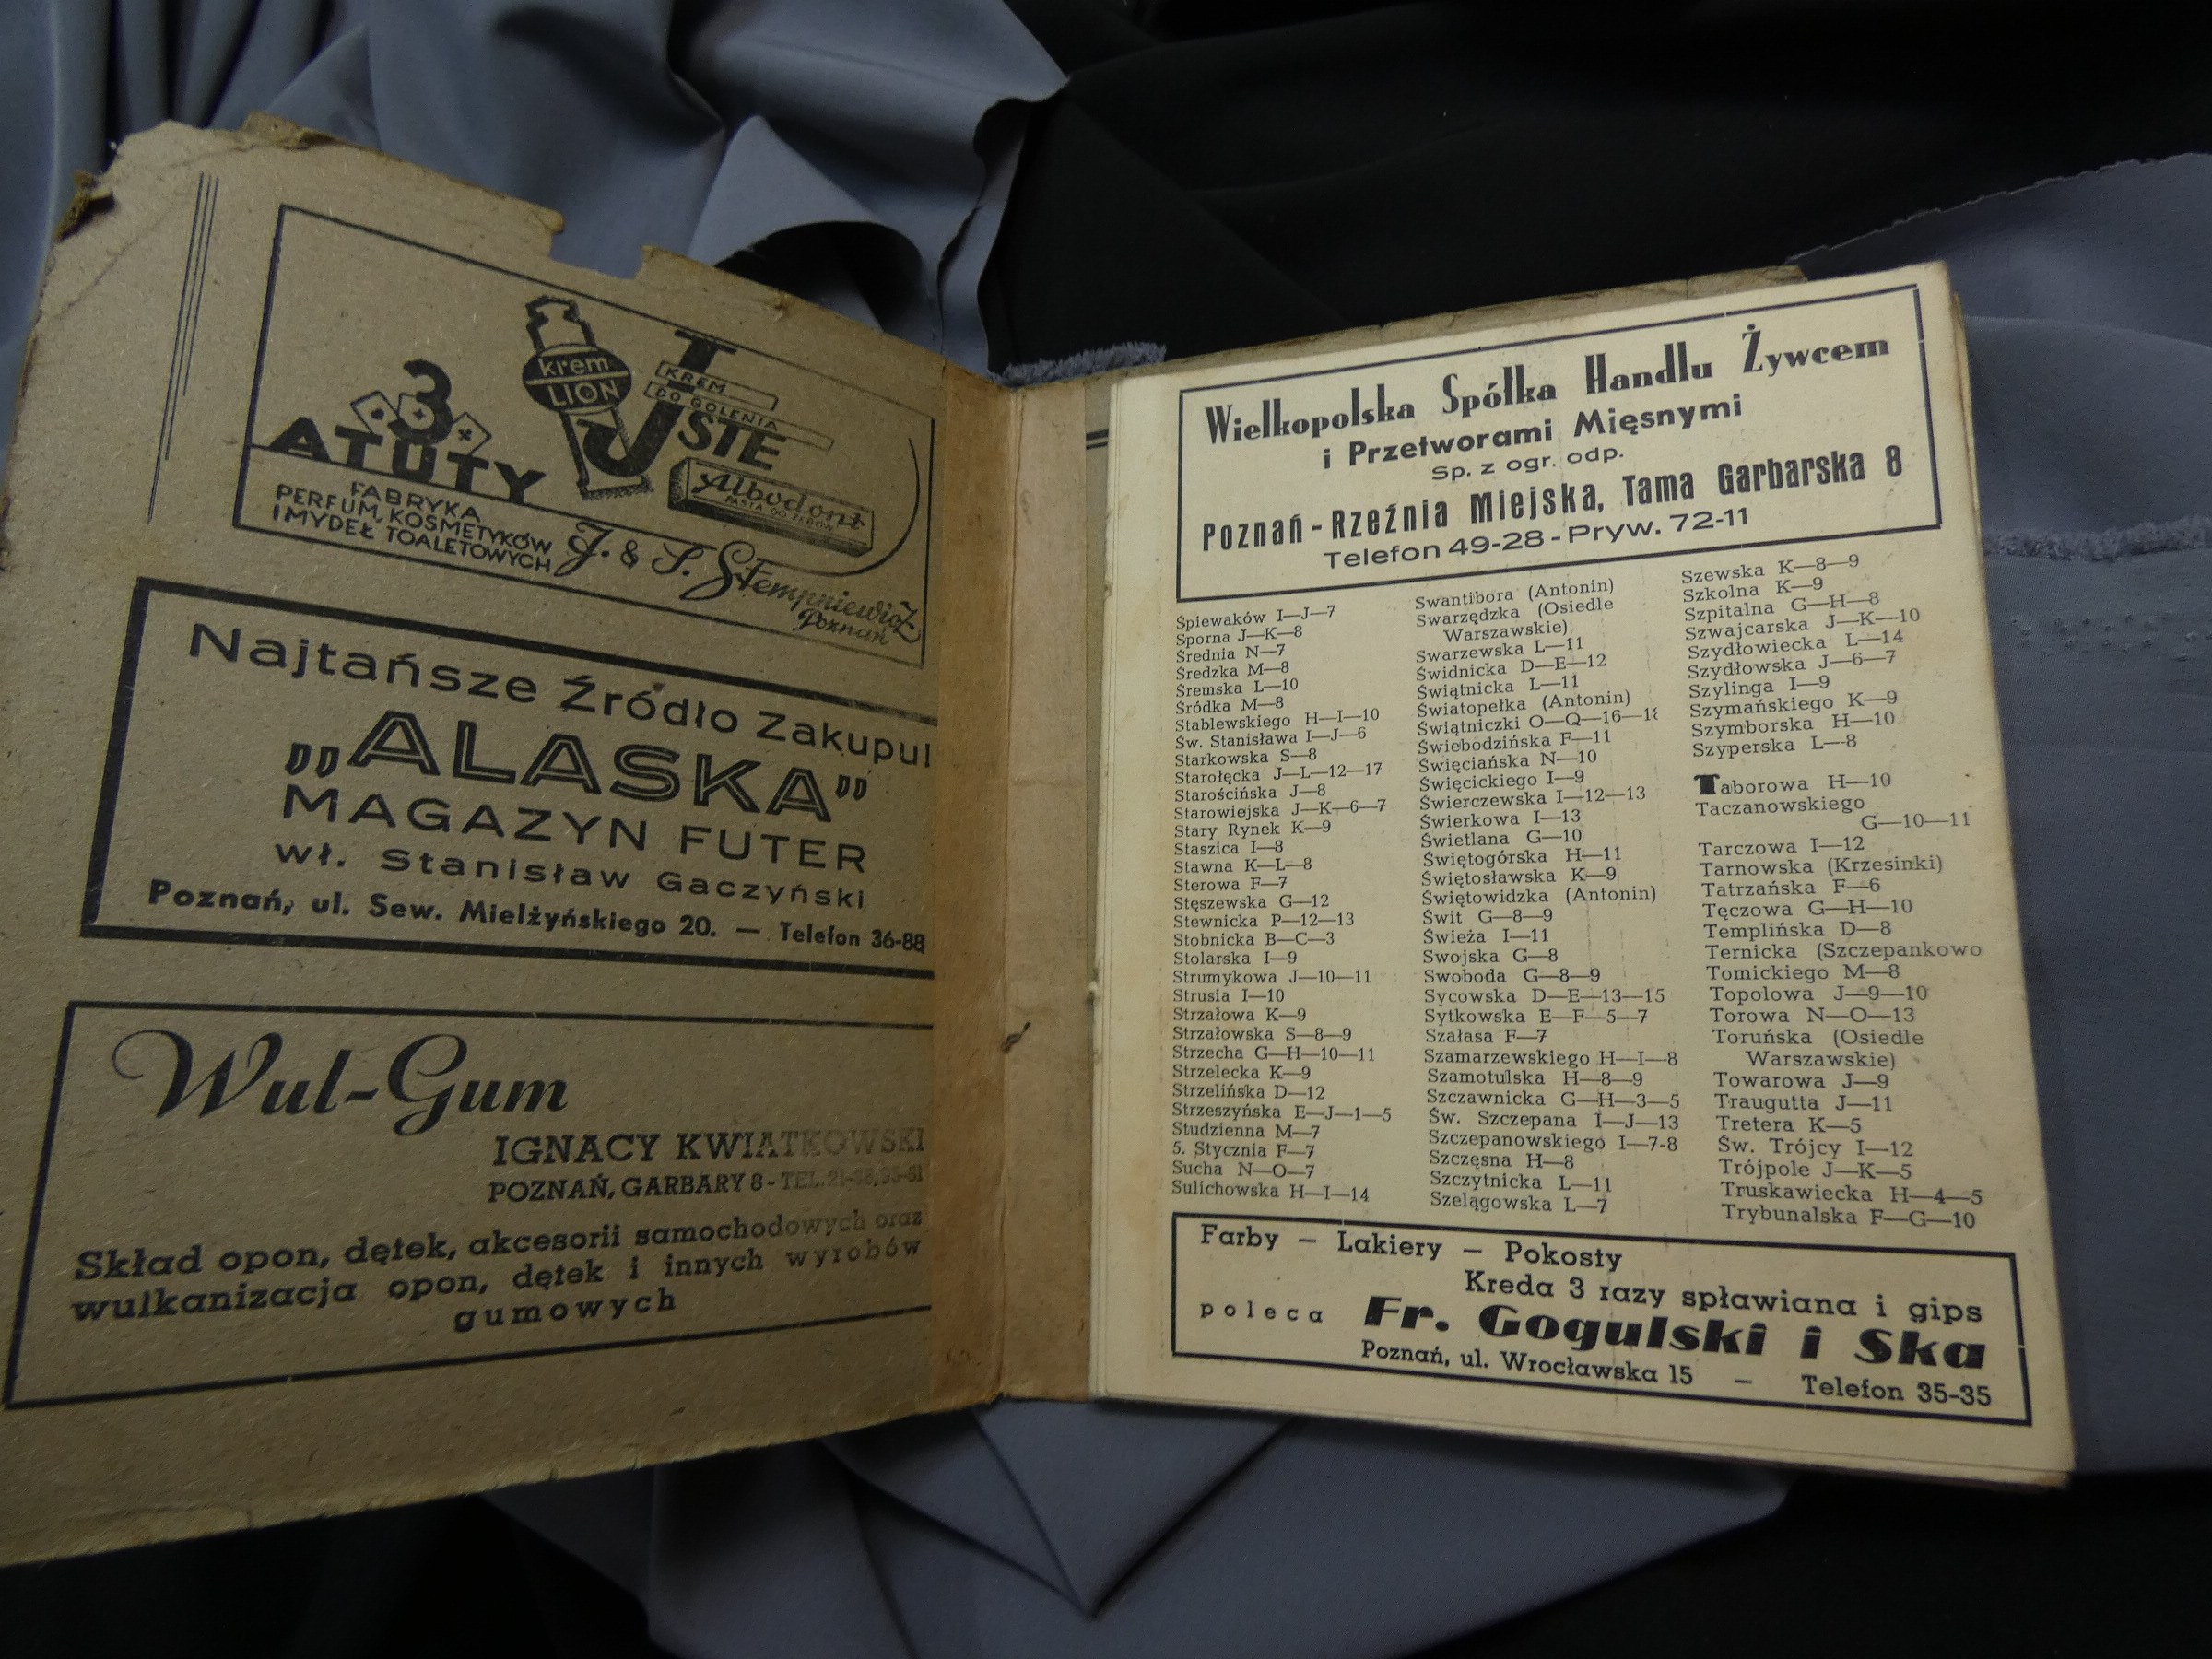 3
ATUTY
krem
LION
KREM
DO GOLENIA
Albodont
PASTA DO ZĘBÓW
FABRYKA
PERFUM, KOSMETYKÓW
I MYDEŁ TOALETOWYCH
J. & S. Stempniewicz
Poznań
Najtańsze Źródło Zakupu!
„ALASKA”
MAGAZYN FUTER
wł. Stanisław Gaczyński
Poznań, ul. Sew. Mielżyńskiego 20. — Telefon 36-88
Wul-Gum
IGNACY KWIATKOWSKI
POZNAŃ, GARBARY 8 - TEL.
Skład opon, dętek, akcesorii samochodowych oraz
wulkanizacja opon, dętek i innych wyrobów
gumowych
Wielkopolska Spółka Handlu Żywcem
i Przetworami Mięsnymi
sp. z ogr. odp.
Poznań - Rzeźnia Miejska, Tama Garbarska 8
Telefon 49-28 - Pryw. 72-11
Śpiewaków I—J—7
Sporna J—K—8
Średnia N—7
Średzka M—8
Śremska L—10
Śródka M—8
Stablewskiego H—I—10
Św. Stanisława I—J—6
Starkowska S—8
Starołęcka J—L—12—17
Starościńska J—8
Starowiejska J—K—6—7
Stary Rynek K—9
Staszica I—8
Stawna K—L—8
Sterowa F—7
Stęszewska G—12
Stewnicka P—12—13
Stobnicka B—C—3
Stolarska I—9
Strumykowa J—10—11
Strusia I—10
Strzałowa K—9
Strzałowska S—8—9
Strzecha G—H—10—11
Strzelecka K—9
Strzelińska D—12
Strzeszyńska E—J—1—5
Studzienna M—7
5. Stycznia F—7
Sucha N—O—7
Sulichowska H—I—14
Swantibora (Antonin)
Swarzędzka (Osiedle
Warszawskie)
Swarzewska L—11
Świdnicka D—E—12
Świątnicka L—11
Światopełka (Antonin)
Świątniczki O—Q—16—18
Świebodzińska F—11
Święciańska N—10
Święcickiego I—9
Świerczewska I—12—13
Świerkowa I—13
Świetlana G—10
Świętogórska H—11
Świętosławska K—9
Świętowidzka (Antonin)
Świt G—8—9
Świeża I—11
Swojska G—8
Swoboda G—8—9
Sycowska D—E—13—15
Sytkowska E—F—5—7
Szałasa F—7
Szamarzewskiego H—I—8
Szamotulska H—8—9
Szczawnicka G—H—3—5
Św. Szczepana I—J—13
Szczepanowskiego I—7-8
Szczęsna H—8
Szczytnicka L—11
Szelągowska L—7
Szewska K—8—9
Szkolna K—9
Szpitalna G—H—8
Szwajcarska J—K—10
Szydłowiecka L—14
Szydłowska J—6—7
Szylinga I—9
Szymańskiego K—9
Szymborska H—10
Szyperska L—8
Taborowa H—10
Taczanowskiego
G—10—11
Tarczowa I—12
Tarnowska (Krzesinki)
Tatrzańska F—6
Tęczowa G—H—10
Templińska D—8
Ternicka (Szczepankowo
Tomickiego M—8
Topolowa J—9—10
Torowa N—O—13
Toruńska (Osiedle
Warszawskie)
Towarowa J—9
Traugutta J—11
Tretera K—5
Św. Trójcy I—12
Trójpole J—K—5
Truskawiecka H—4—5
Trybunalska F—G—10
Farby – Lakiery – Pokosty
Kreda 3 razy spławiana i gips
poleca Fr. Gogulski i Ska
Poznań, ul. Wrocławska 15 – Telefon 35-35